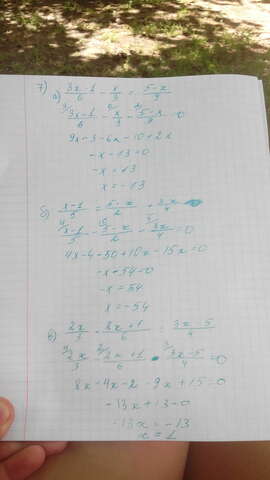 7) а) (3x-1)/6 - x/3 = (5-x)/9
3x-1/6 - x/3 - 5-x/9 = 0
9x-3-6x-10+2x
-x-13=0
-x=13
x=-13
б) (x-1)/5 = (5-x)/2 + 3x/4
x-1/5 - 5-x/2 - 3x/4 = 0
4x-4-50+10x-15x=0
-x-54=0
-x=54
x=-54
в) 2x/3 - (2x+1)/6 = (3x-5)/4
2x/3 - 2x+1/6 - 3x-5/4 = 0
8x-4x-2-9x+15=0
-13x+13=0
-13x=-13
x=1